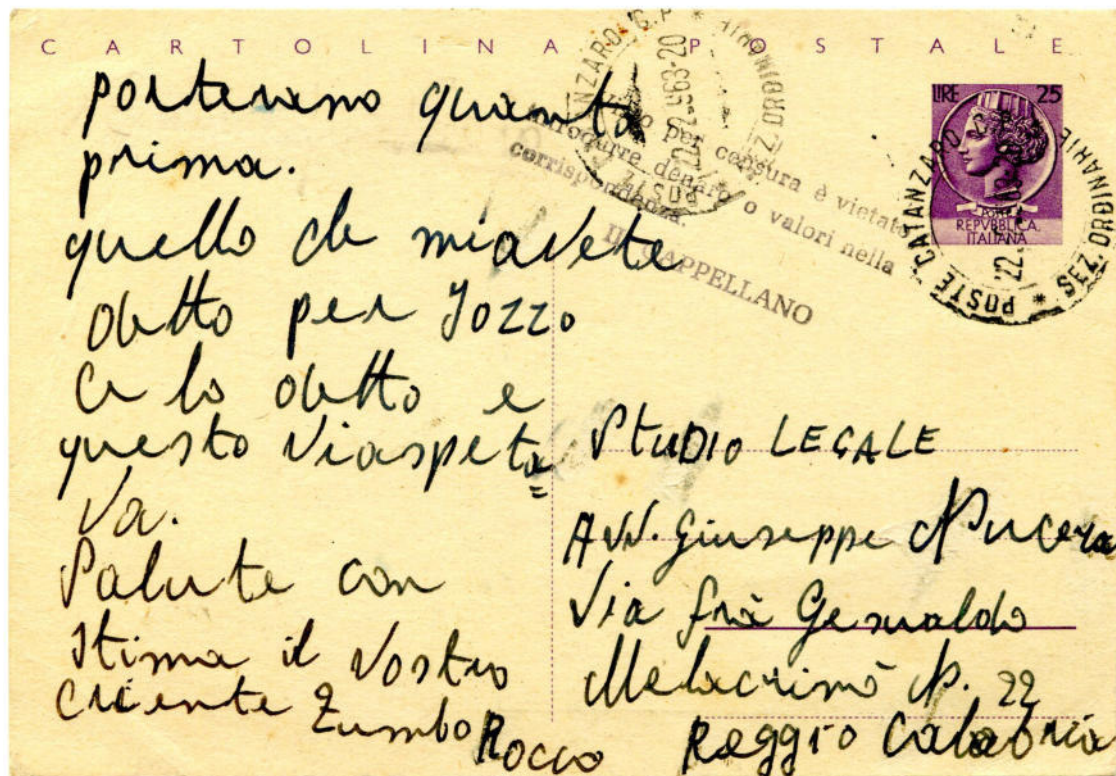 CARTOLINA POSTALE
porterano quanto
prima.
quello che miavete
detto per Jozzo
Ce lo detto e
questo Viaspeta=
Va.
Salute con
Stima il Vostro
Criente Zumbo Rocco
per censura è vietato
introdurre denaro o valori nella
corrispondenza.
IL CAPPELLANO
22-2-963-20
POSTE CATANZARO
SEZ. ORDINARIE
LIRE 25
POSTE
REPVBBLICA
ITALIANA
STUDIO LEGALE
Avv. Giuseppe Nucera
Via frà Gesualdo
Melacrinò N. 22
Reggio Calabria